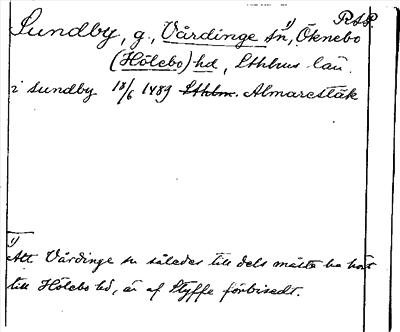 P.S.P.
Sundby, g., Vårdinge sn,¹⁾ Öknebo
(Hölebo) hd, Sthlms län.
i sundby 18/6 1489 Sthlm. Almarestäk
¹⁾
Att Vårdinge sn således till dels måste ha hört
till Hölebo hd, är af Styffe förbisedt.